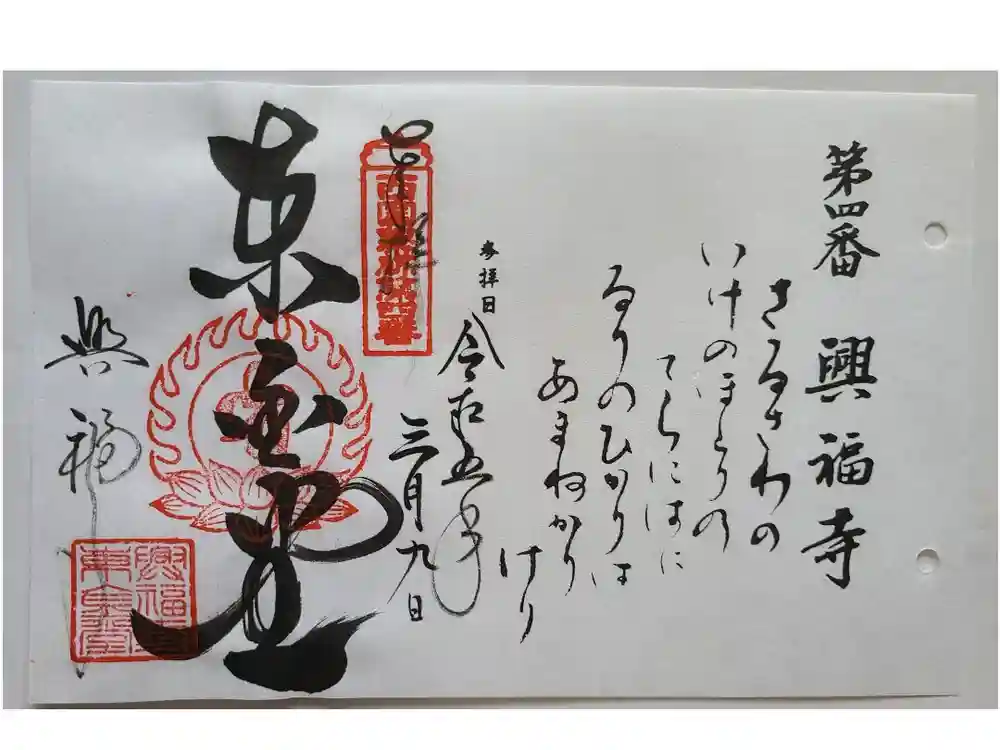 第四番 興福寺
さるさわの
いけのほとりの
てらにはに
るりのひかりは
あまねかり
けり
参拝日 令和五年
三月九日
奉拝
東金堂
興福寺
興福寺
東金堂